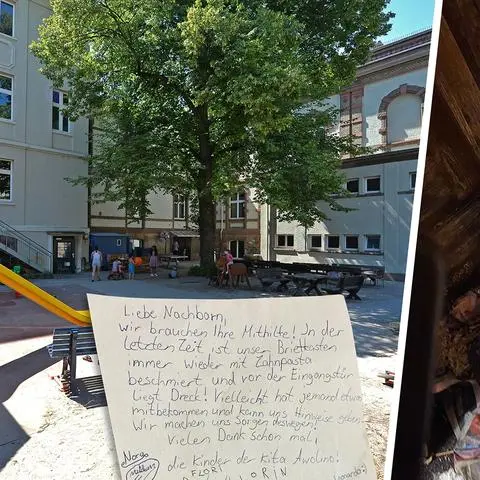 Liebe Nachbarn,
wir brauchen Ihre Mithilfe! In der
letzten Zeit ist unser Briefkasten
immer wieder mit Zahnpasta
beschmiert und vor der Eingangstür
liegt Dreck! Vielleicht hat jemand etwas
mitbekommen und kann uns Hinweise geben.
Wir machen uns Sorgen deswegen!
Vielen Dank schon mal!
die Kinder der Kita
FLORI
ORIN
Leonardo